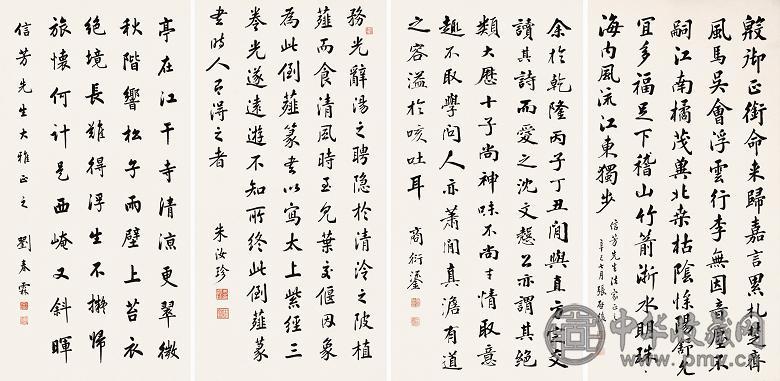 殷御正銜命來歸嘉言累札楚齊
風馬吳會浮雲行李無因音塵不
嗣江南橘茂冀北桑枯陰慘陽舒允
宜多福足下稽山竹箭浙水明珠
海內風流江東獨步
信芳先生法家正之
辛巳七月張啟後
余於乾隆丙子丁丑間與直方定交
讀其詩而愛之沈文愨公亦謂其絕
類大歷十子尚神味不尚才情取意
趣不取學問人亦蕭閒真澹有道
之容溢於咳吐耳
商衍鎏
務光辭湯之聘隱於清泠之陂植
薤而食清風時至見葉交偃因象
為此倒薤篆書以寫太上紫經三
卷光遂遠遊不知所終此倒薤篆
書時人得之者
朱汝珍
亭在江干寺清涼更翠微
秋階響松子雨壁上苔衣
絕境長難得浮生不擬歸
旅懷何計是西崦又斜暉
信芳先生大雅正之 劉春霖
中华收藏网